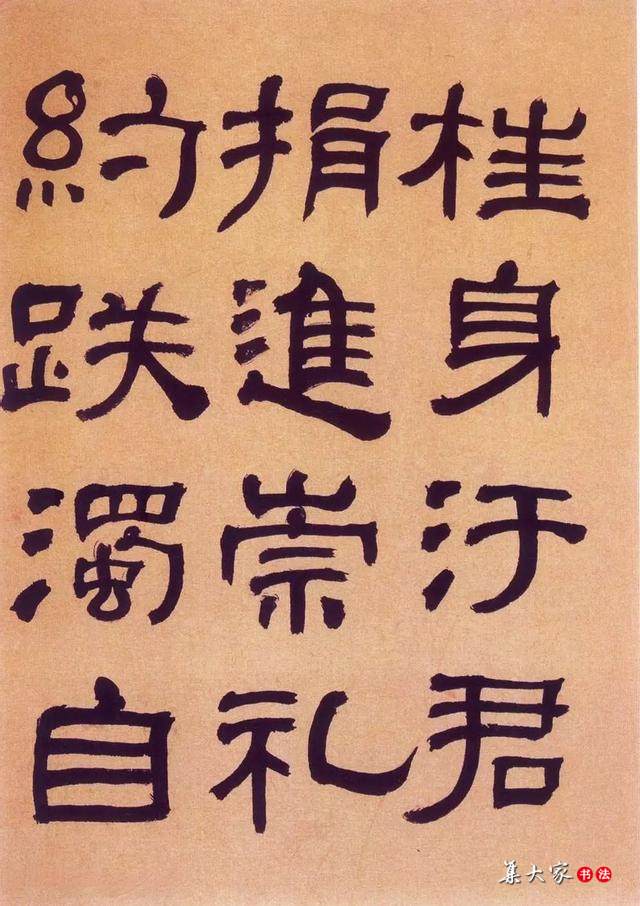 桂身汙君
捐進崇礼
約跌濁自
集大家书法